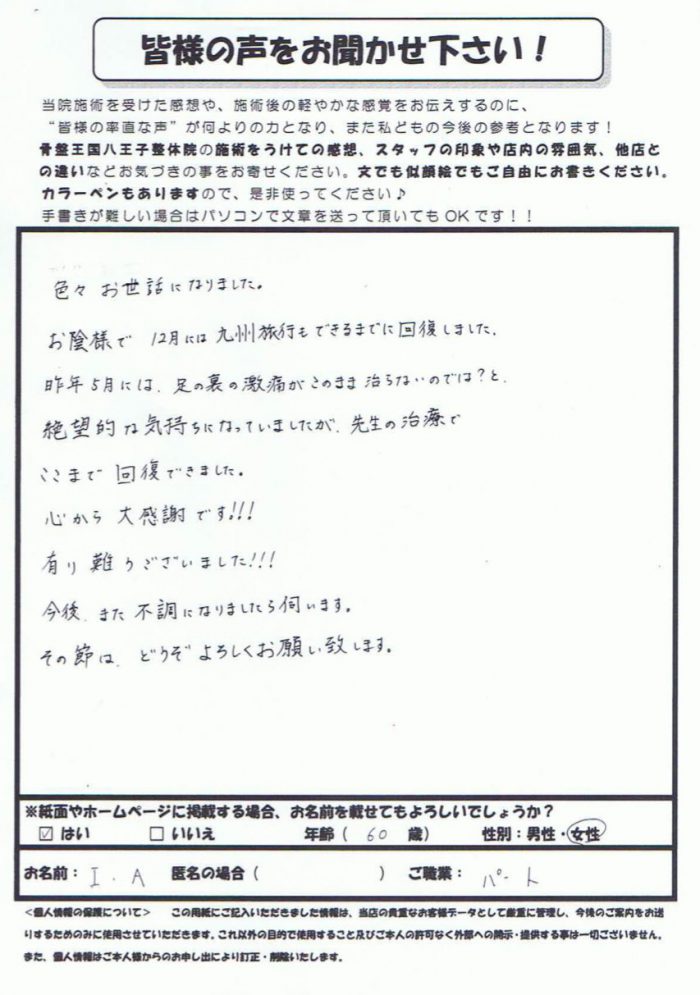 皆様の声をお聞かせ下さい!
当院施術を受けた感想や、施術後の軽やかな感覚をお伝えするのに、
“皆様の率直な声”が何よりの力となり、また私どもの今後の参考となります!
骨盤王国八王子整体院の施術をうけての感想、スタッフの印象や店内の雰囲気、他店と
の違いなどお気づきの事をお寄せください。文でも似顔絵でもご自由にお書きください。
カラーペンもありますので、是非使ってください♪
手書きが難しい場合はパソコンで文章を送って頂いてもOKです!!
色々お世話になりました。
お陰様で 12月には九州旅行もできるまでに回復しました。
昨年5月には、足の裏の激痛がこのまま治らないのでは?と、
絶望的な気持ちになっていましたが、先生の治療で
ここまで回復できました。
心から大感謝です!!!
有り難うございました!!!
今後、また不調になりましたら伺います。
その節は、どうぞよろしくお願い致します。
※紙面やホームページに掲載する場合、お名前を載せてもよろしいでしょうか?
☑ はい □ いいえ 年齢( 60 歳) 性別:男性・女性
お名前: I.A 匿名の場合( ) ご職業: パート
<個人情報の保護について> この用紙にご記入いただきました情報は、当店の貴重なお客様データとして厳重に管理し、今後のご案内をお送
りするためのみに使用させていただきます。これ以外の目的で使用すること及びご本人の許可なく外部への開示・提供する事は一切ございません。
また、個人情報はご本人様からのお申し出により訂正・削除いたします。